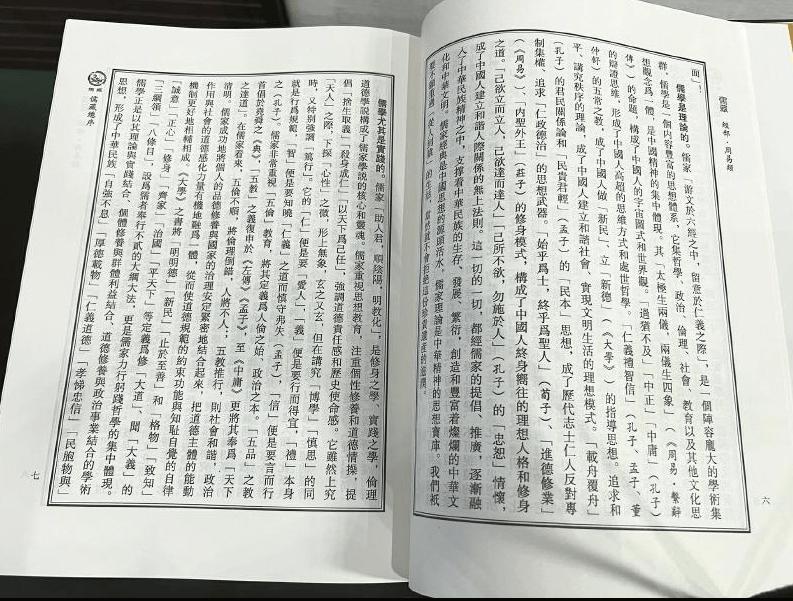 儒藏 經部 周易類
六
面」!
儒學是理論的。儒家「游文於六經之中,留意於仁義之際」,是一個陣容龐大的學術集
群,儒學是一個内容豐富的思想體系,它集哲學、政治、倫理、社會、教育以及其他文化思
想觀念爲一體,是中國精神的集中體現。其「太極生兩儀,兩儀生四象」(《周易·繫辭
傳》)的命題,構成了中國人的宇宙圖式和世界觀。「過猶不及」、「中正」、「中庸」(孔子)
的辯證思維,形成了中國人高超的思維方式和處世哲學。「仁義禮智信」(孔子、孟子、董
仲舒)的五常之教,成了中國人做「新民」、立「新德」(《大學》)的指導思想。追求和
平、講究秩序的理論,成了中國人建立和諧社會、實現文明生活的理想模式。「載舟覆舟」
(孔子)的君民關係論和「民貴君輕」(孟子)的「民本」思想,成了歷代志士仁人反對專
制集權、追求「仁政德治」的思想武器。「始乎爲士,終乎爲聖人」(荀子)、「進德修業」
(《周易》)、「内聖外王」(莊子)的修身模式,構成了中國人終身嚮往的理想人格和修身
之道。「己欲立而立人,己欲達而達人」「己所不欲,勿施於人」(孔子)的「忠恕」情懷,
成了中國人建立和諧人際關係的無上法則。這一切的一切,都經儒家的提倡、推廣,逐漸融
入了中華民族精神之中,支撐着中華民族的生存、發展、繁衍,創造和豐富着燦爛的中華文
化和中華文明。儒家經典是中國思想的源頭活水,儒家理論是中華精神的思想寶庫。我們衹
的生活,當然就不會拒絶這份珍貴遺産的滋潤。
儒學尤其是實踐的。儒家「助人君,順陰陽,明教化」,是修身之學、實踐之學,倫理
道德學説構成了儒家學説的核心和靈魂。儒家重視思想教育,注重個性修養和道德情操,提
倡「捨生取義」、「殺身成仁」、「以天下爲己任」,強調道德責任感和歷史使命感。它雖然上究
「天人」之際,下探「心性」之微,形上無象,玄之又玄,但在講究「博學」、「慎思」的同
時,又特別強調「篤行」。它的「仁」便是要「愛人」,「義」便是要行而得宜,「禮」本身
就是行爲規範,「智」便是要知曉「仁義」之道而慎守弗失(孟子),「信」便是要言而行
之(孔子)。儒家非常重視「五倫」教育,將其定義爲人倫之始、政治之本。「五品」之教
首倡於堯舜之《典》,「五教」之義復申於《左傳》《孟子》,至《中庸》更將其奉爲「天下
之達道」。在儒家看來,五倫不順,將倫理倒錯,人將不人;五教推行,則社會和諧,政治
清明。儒家成功地將個人的品德修養與國家的治理安寇緊密地結合起來,把道德主體的能動
作用與社會的道德感化力量有機地融爲一體,從而使道德規範的約束功能與知恥自覺的自律
機制更好地相輔相成。《大學》之書將「明明德」、「新民」、「止於至善」和「格物」、「致知」、
「誠意」、「正心」、「修身」、「齊家」、「治國」、「平天下」等定義爲修「大道」、聞「大義」的
「三綱領」、「八條目」,設爲儒者奉行不貳的大綱大法,更是儒家力行躬踐哲學的集中體現。
儒學正是以其理論與實踐結合、個體修養與群體利益結合、道德修養與政治事業結合的學術
思想,形成了中華民族「自強不息」、「厚德載物」、「仁義道德」、「孝悌忠信」、「民胞物與」
儒藏總序
七